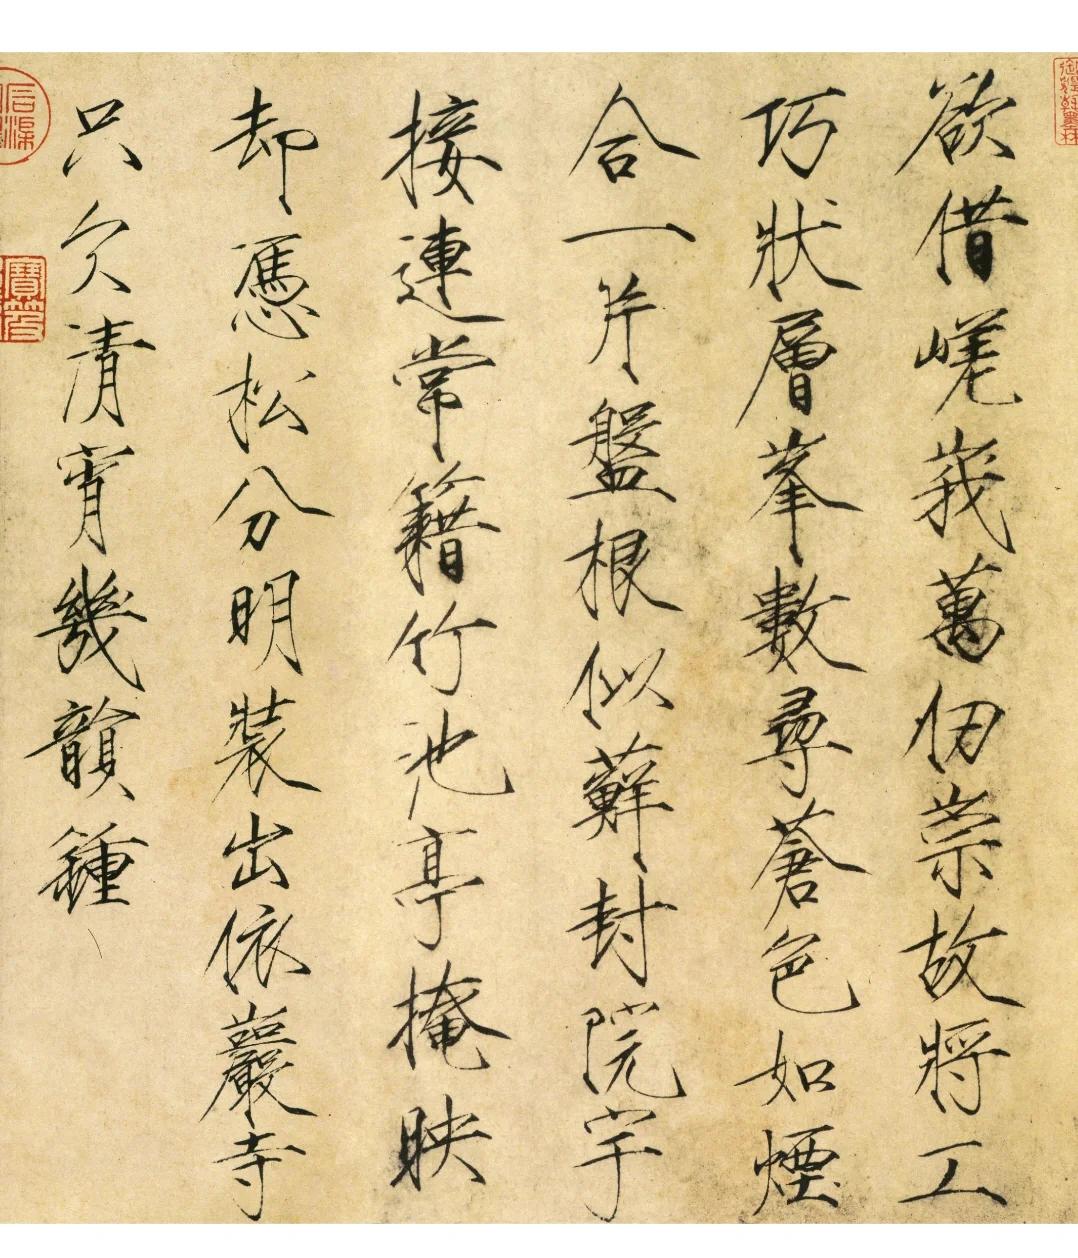 欲借嵯峨萬仞崇故將工
巧狀層峯數尋蒼色如煙
合一片盤根似蘚封院宇
接連常籍竹池亭掩映
却憑松分明裝出依巖寺
只欠清宵幾韻鍾
寶笈